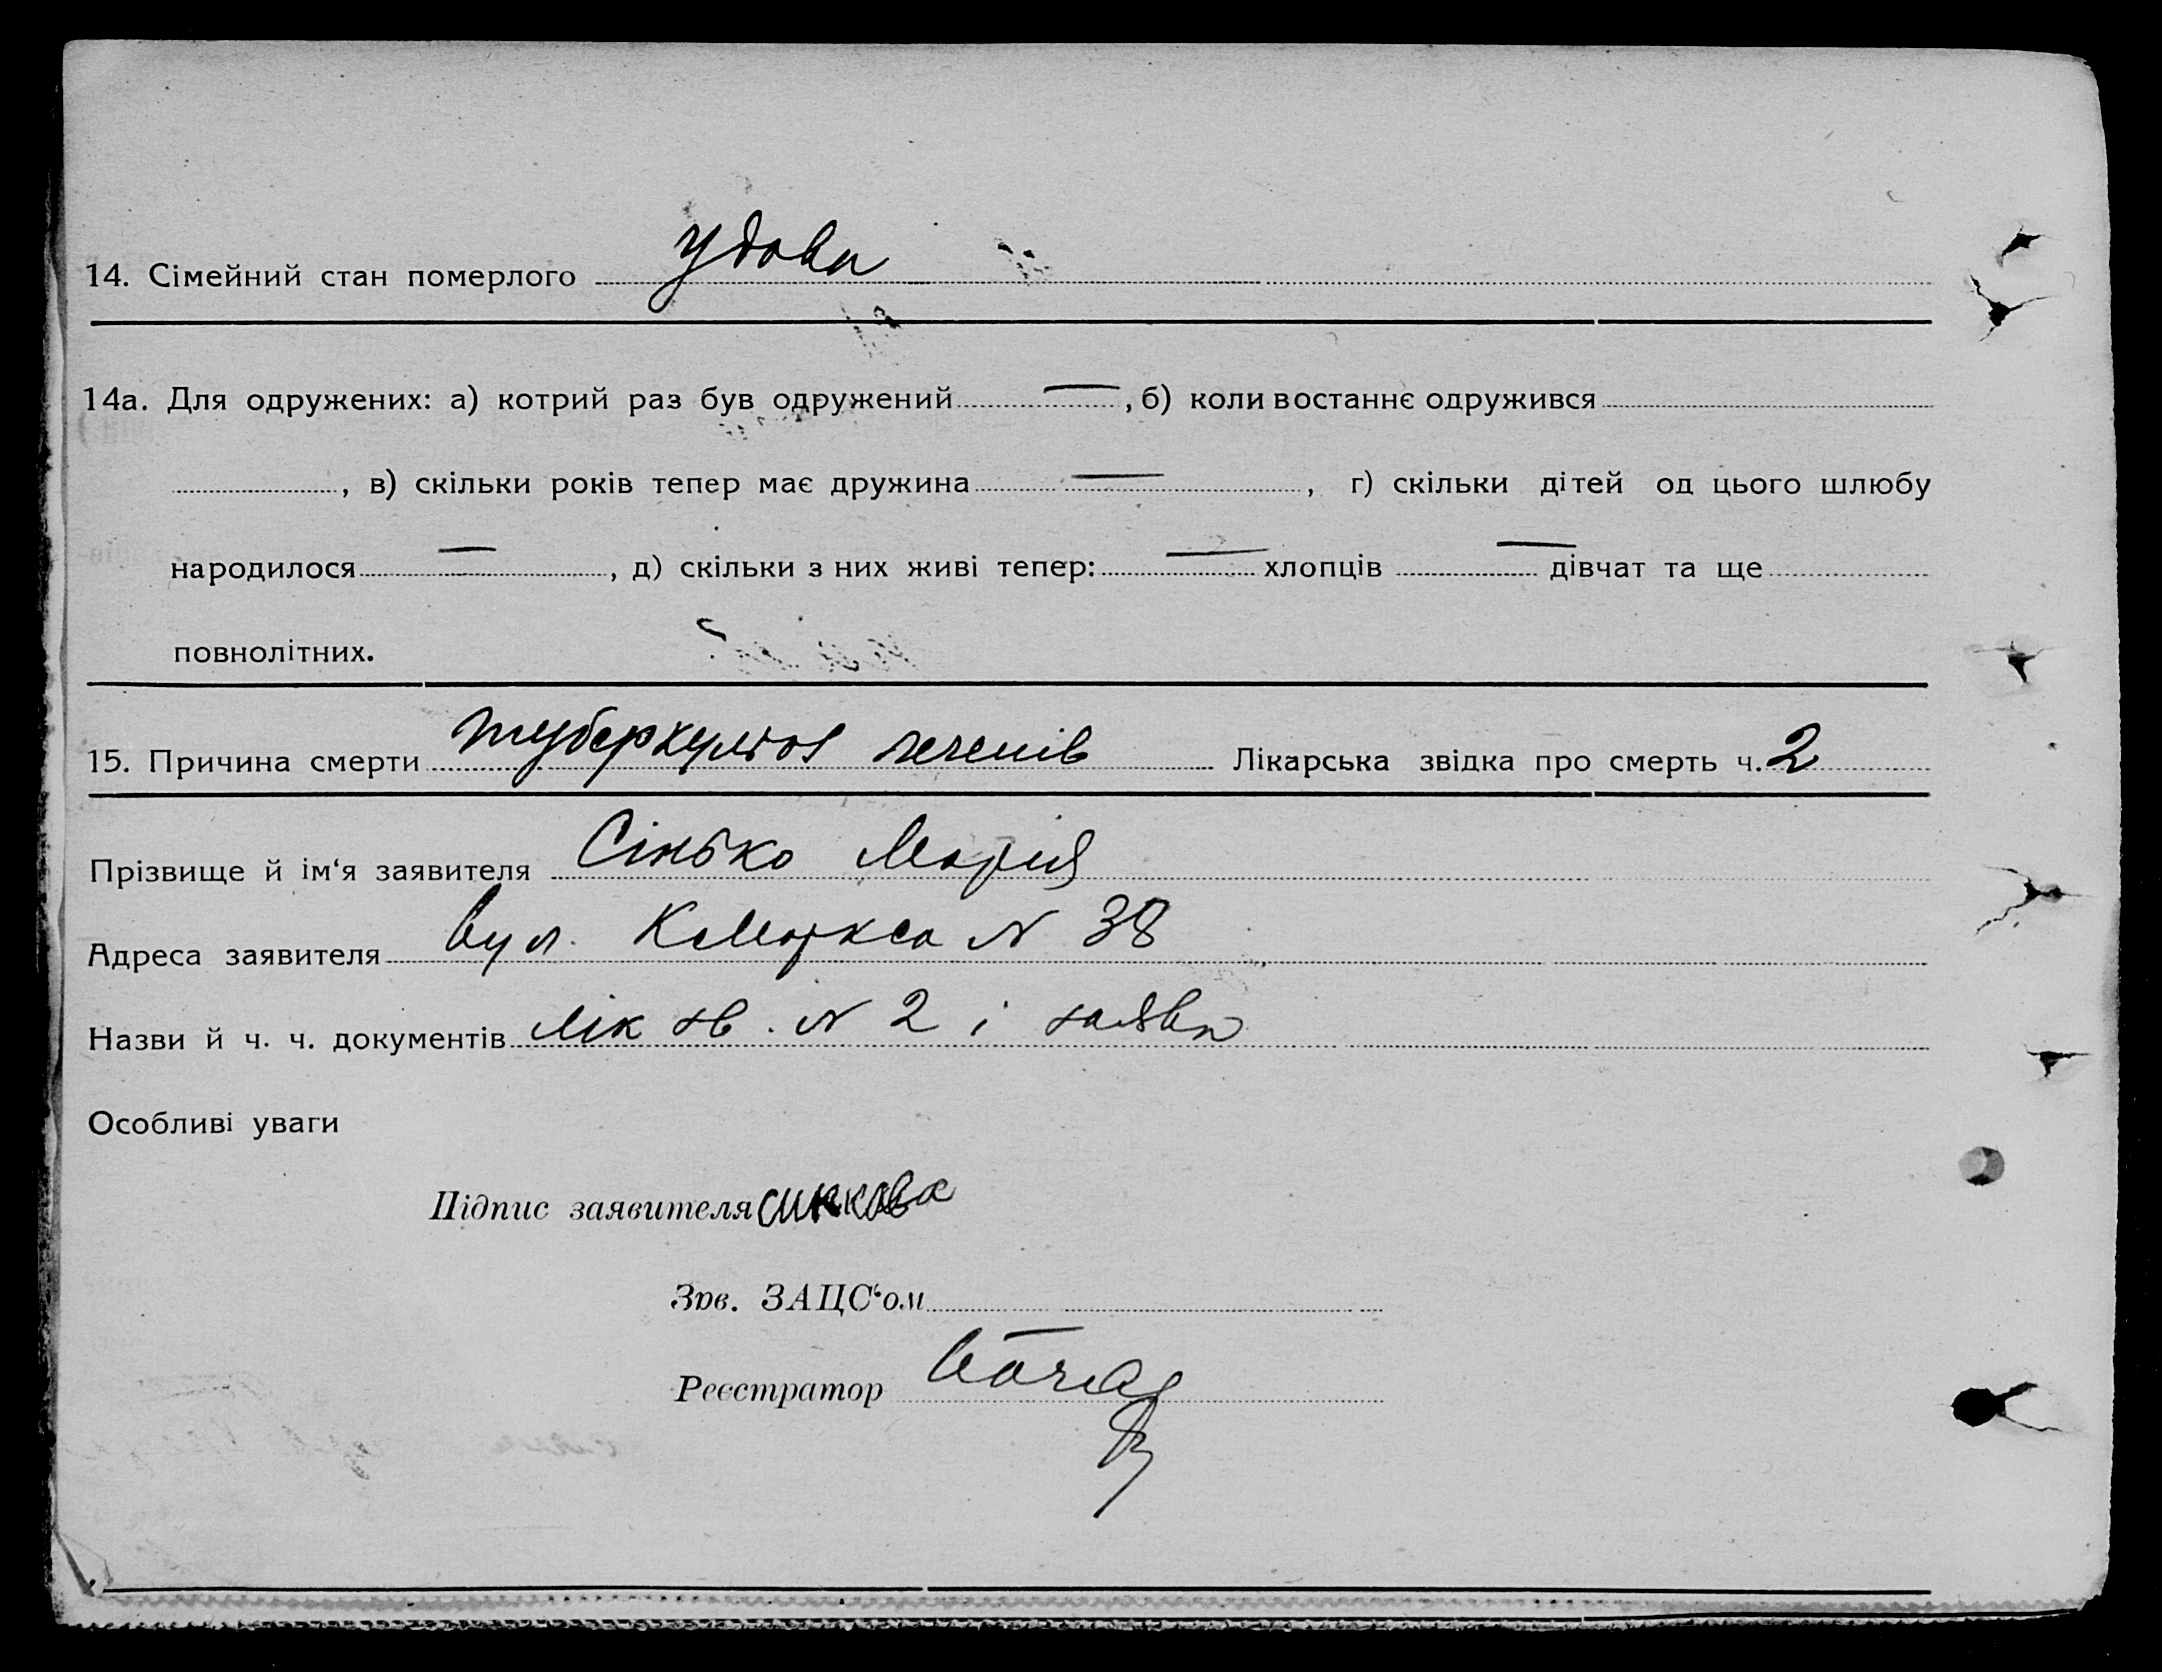 14. Сімейний стан померлого удова
14а. Для одружених: а) котрий раз був одружений —, б) коли востаннє одружився
, в) скільки років тепер має дружина —, г) скільки дітей од цього шлюбу
народилося —, д) скільки з них живі тепер: — хлопців — дівчат та ще
повнолітних.
15. Причина смерти туберкульоз легенів Лікарська звідка про смерть ч. 2
Прізвище й ім‘я заявителя Сінько Марія
Адреса заявителя вул. К Маркса N 38
Назви й ч. ч. документів Лік зв. N 2 і заява
Особливі уваги
Підпис заявителя
Зав. ЗАЦС‘ом
Реєстратор